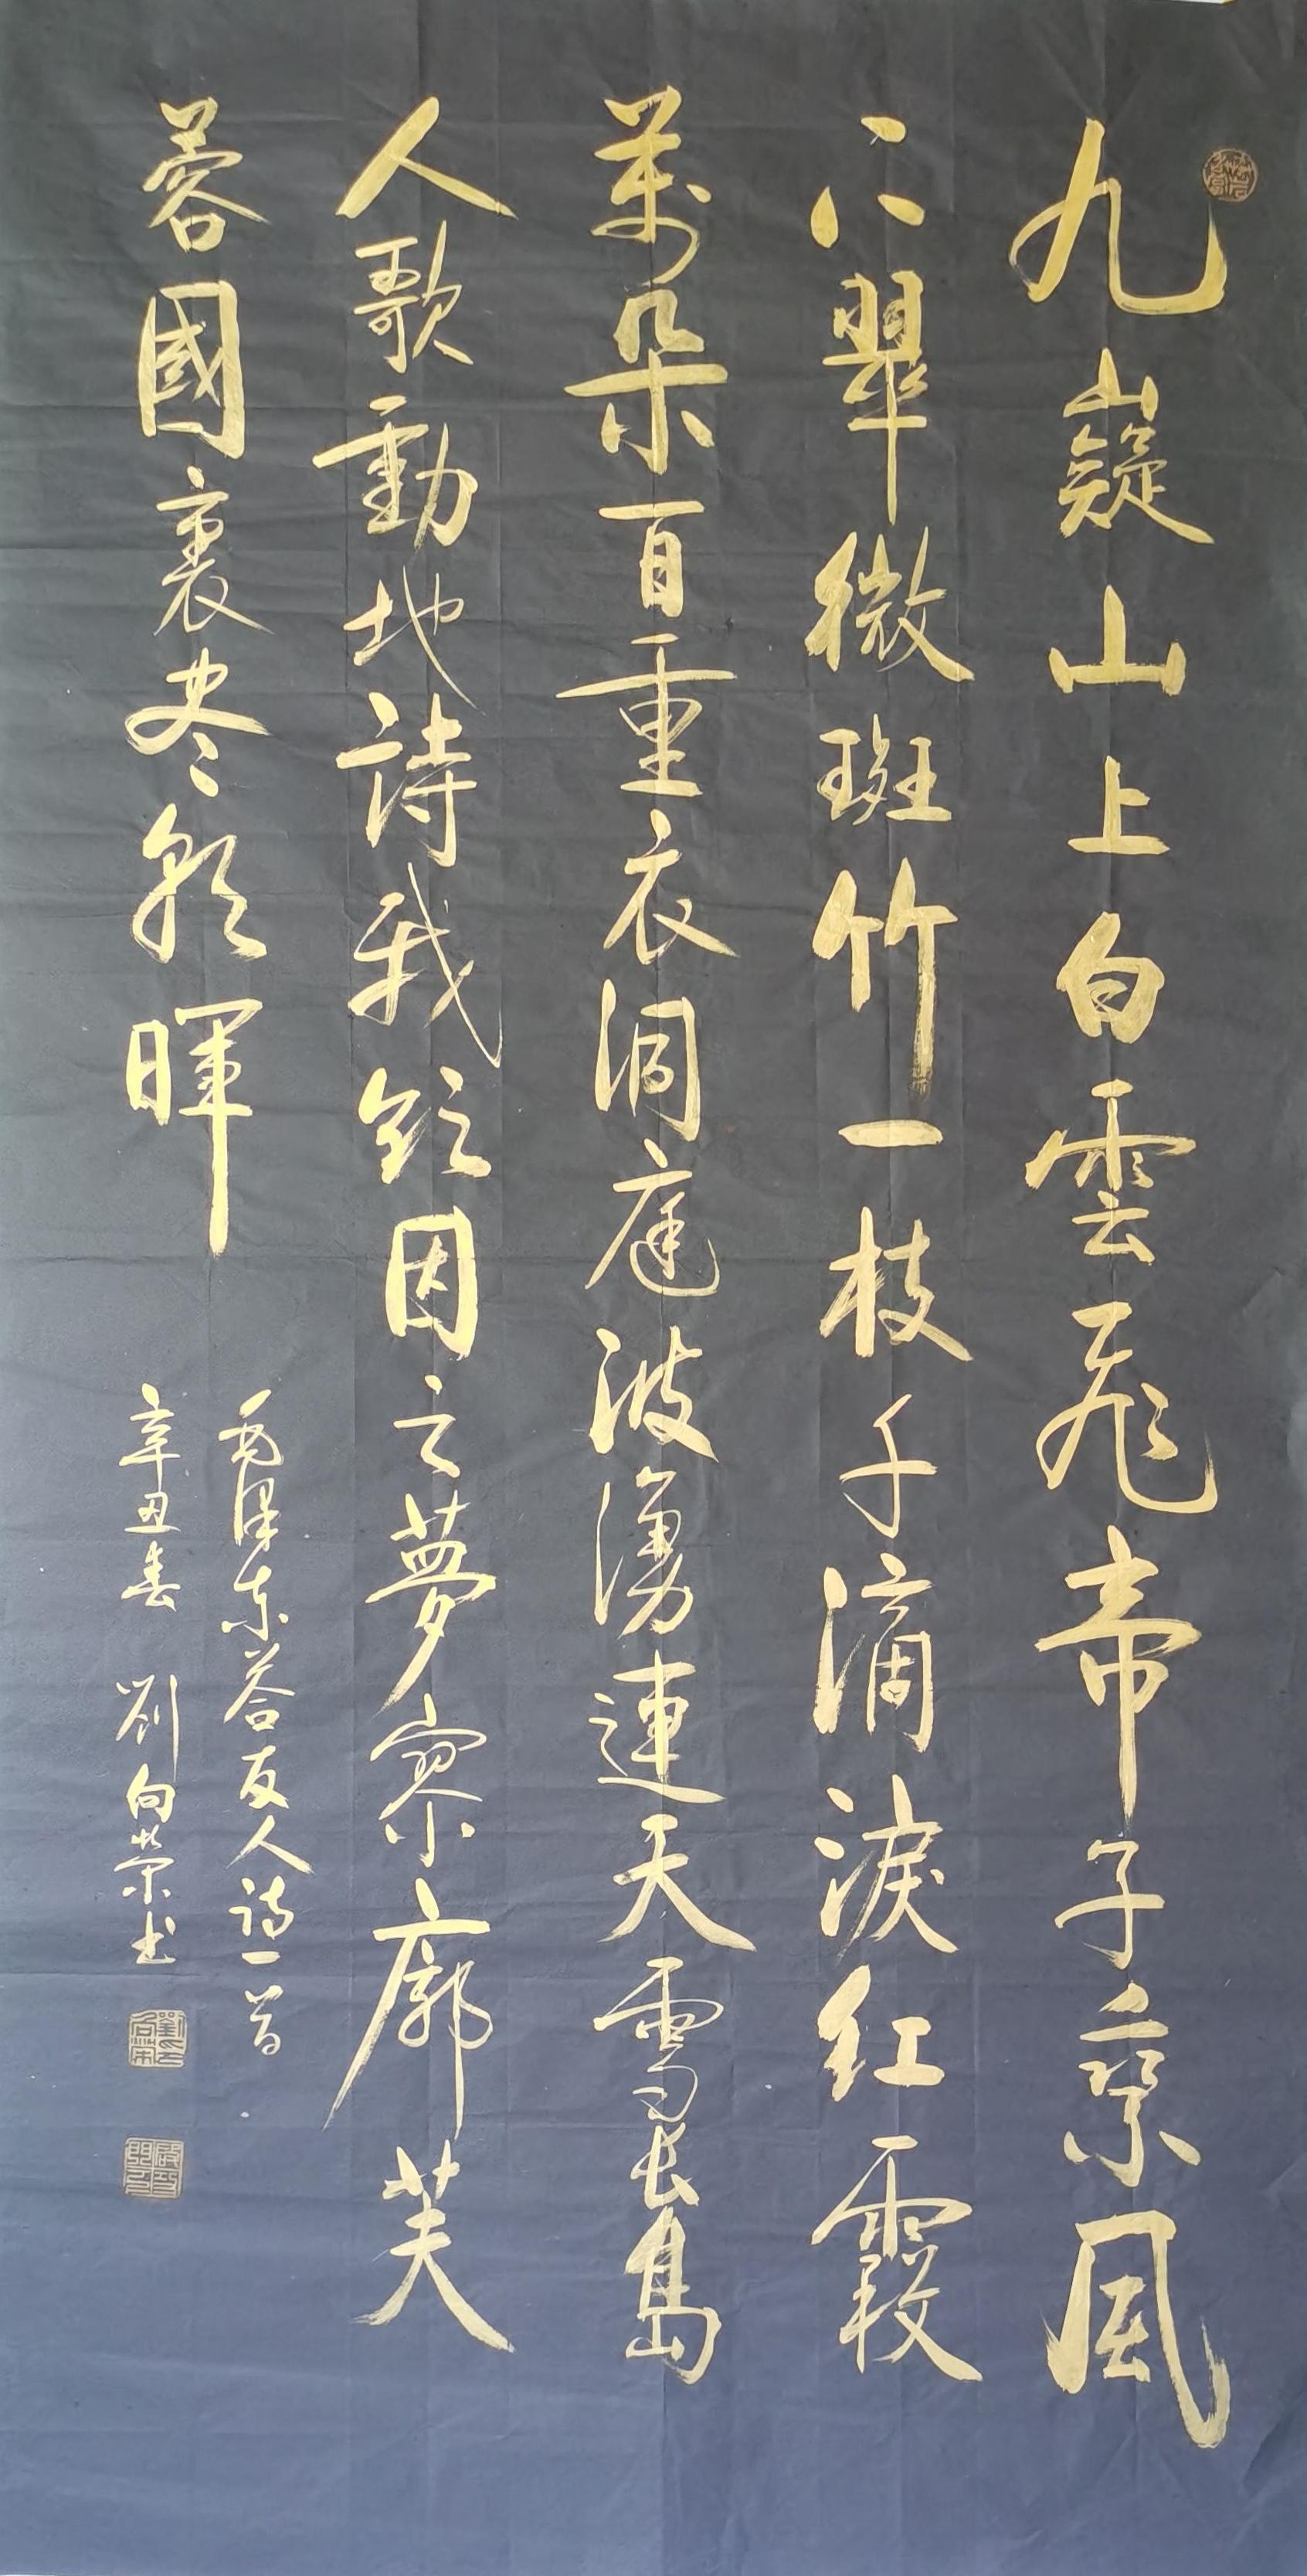 九嶷山上白雲飛帝子乘風
下翠微斑竹一枝千滴淚紅霞
萬朵百重衣洞庭波湧連天雪長島
人歌動地詩我欲因之夢寥廓芙
蓉國裏盡朝暉
毛澤東答友人詩一首
辛丑春 劉向榮书